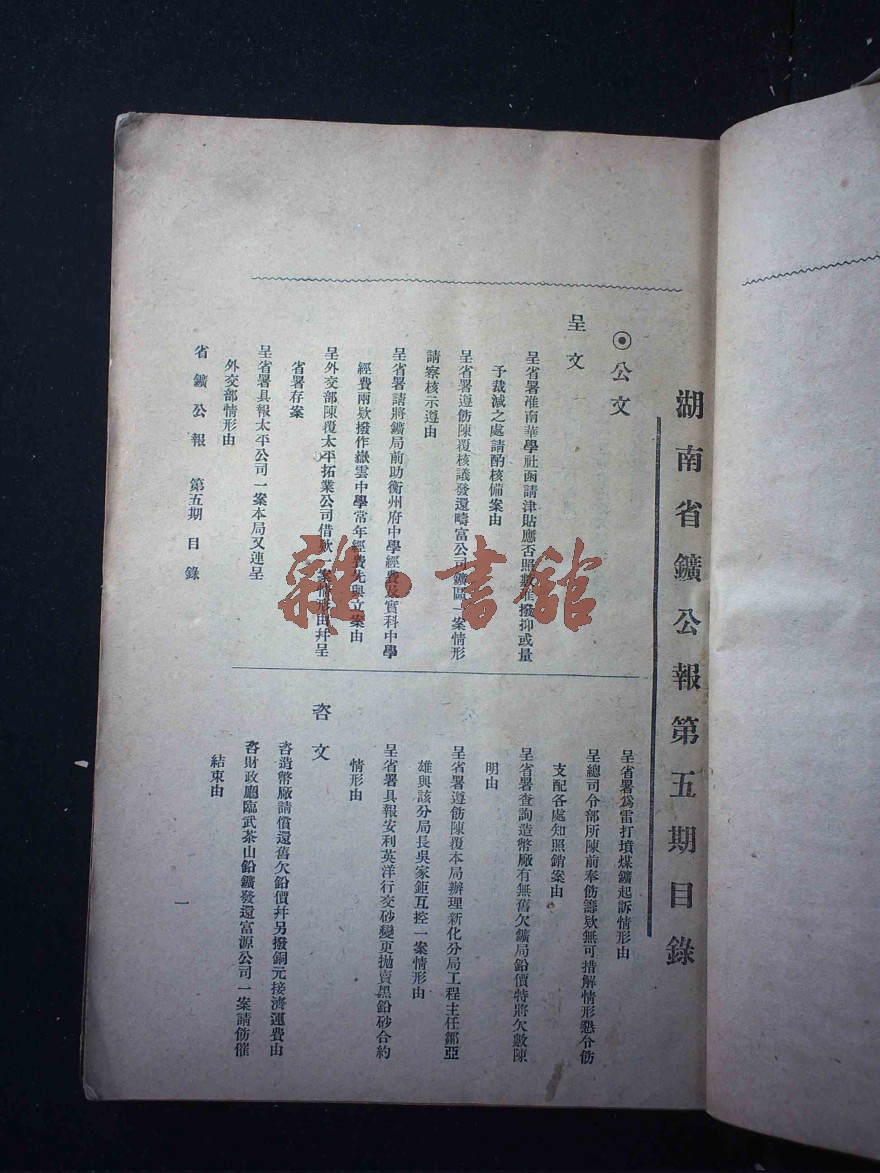 湖南省鑛公報第五期目錄
⦿公文
呈文
呈省署准南華學社函請津貼應否照數准撥抑或量
予裁減之處請酌核備案由
呈省署遵飭陳覆核議發還疇富公司鑛區一案情形
請察核示遵由
呈省署請將鑛局前助衡州府中學經費及實科中學
經費兩欵撥作嶽雲中學常年經費先與立案由
呈外交部陳覆太平拓業公司借欵一案情形由幷呈
省署存案
呈省署具報太平公司一案本局又連呈
外交部情形由
呈省署爲雷打墳煤鑛起訴情形由
呈總司令部所陳前奉飭籌欵無可措解情形懇令飭
支配各處知照銷案由
呈省署查詢造幣廠有無舊欠鑛局鉛價特將欠數陳
明由
呈省署遵飭陳覆本局辦理新化分局工程主任鄒亞
雄與該分局長吳家鉅互控一案情形由
呈省署具報安利英洋行交砂變更拋賣黑鉛砂合約
情形由
咨文
咨造幣廠請償還舊欠鉛價幷另撥銅元接濟運費由
咨財政廳臨武茶山鉛鑛發還富源公司一案請飭催
結束由
省鑛公報 第五期 目錄
一
雜·書館